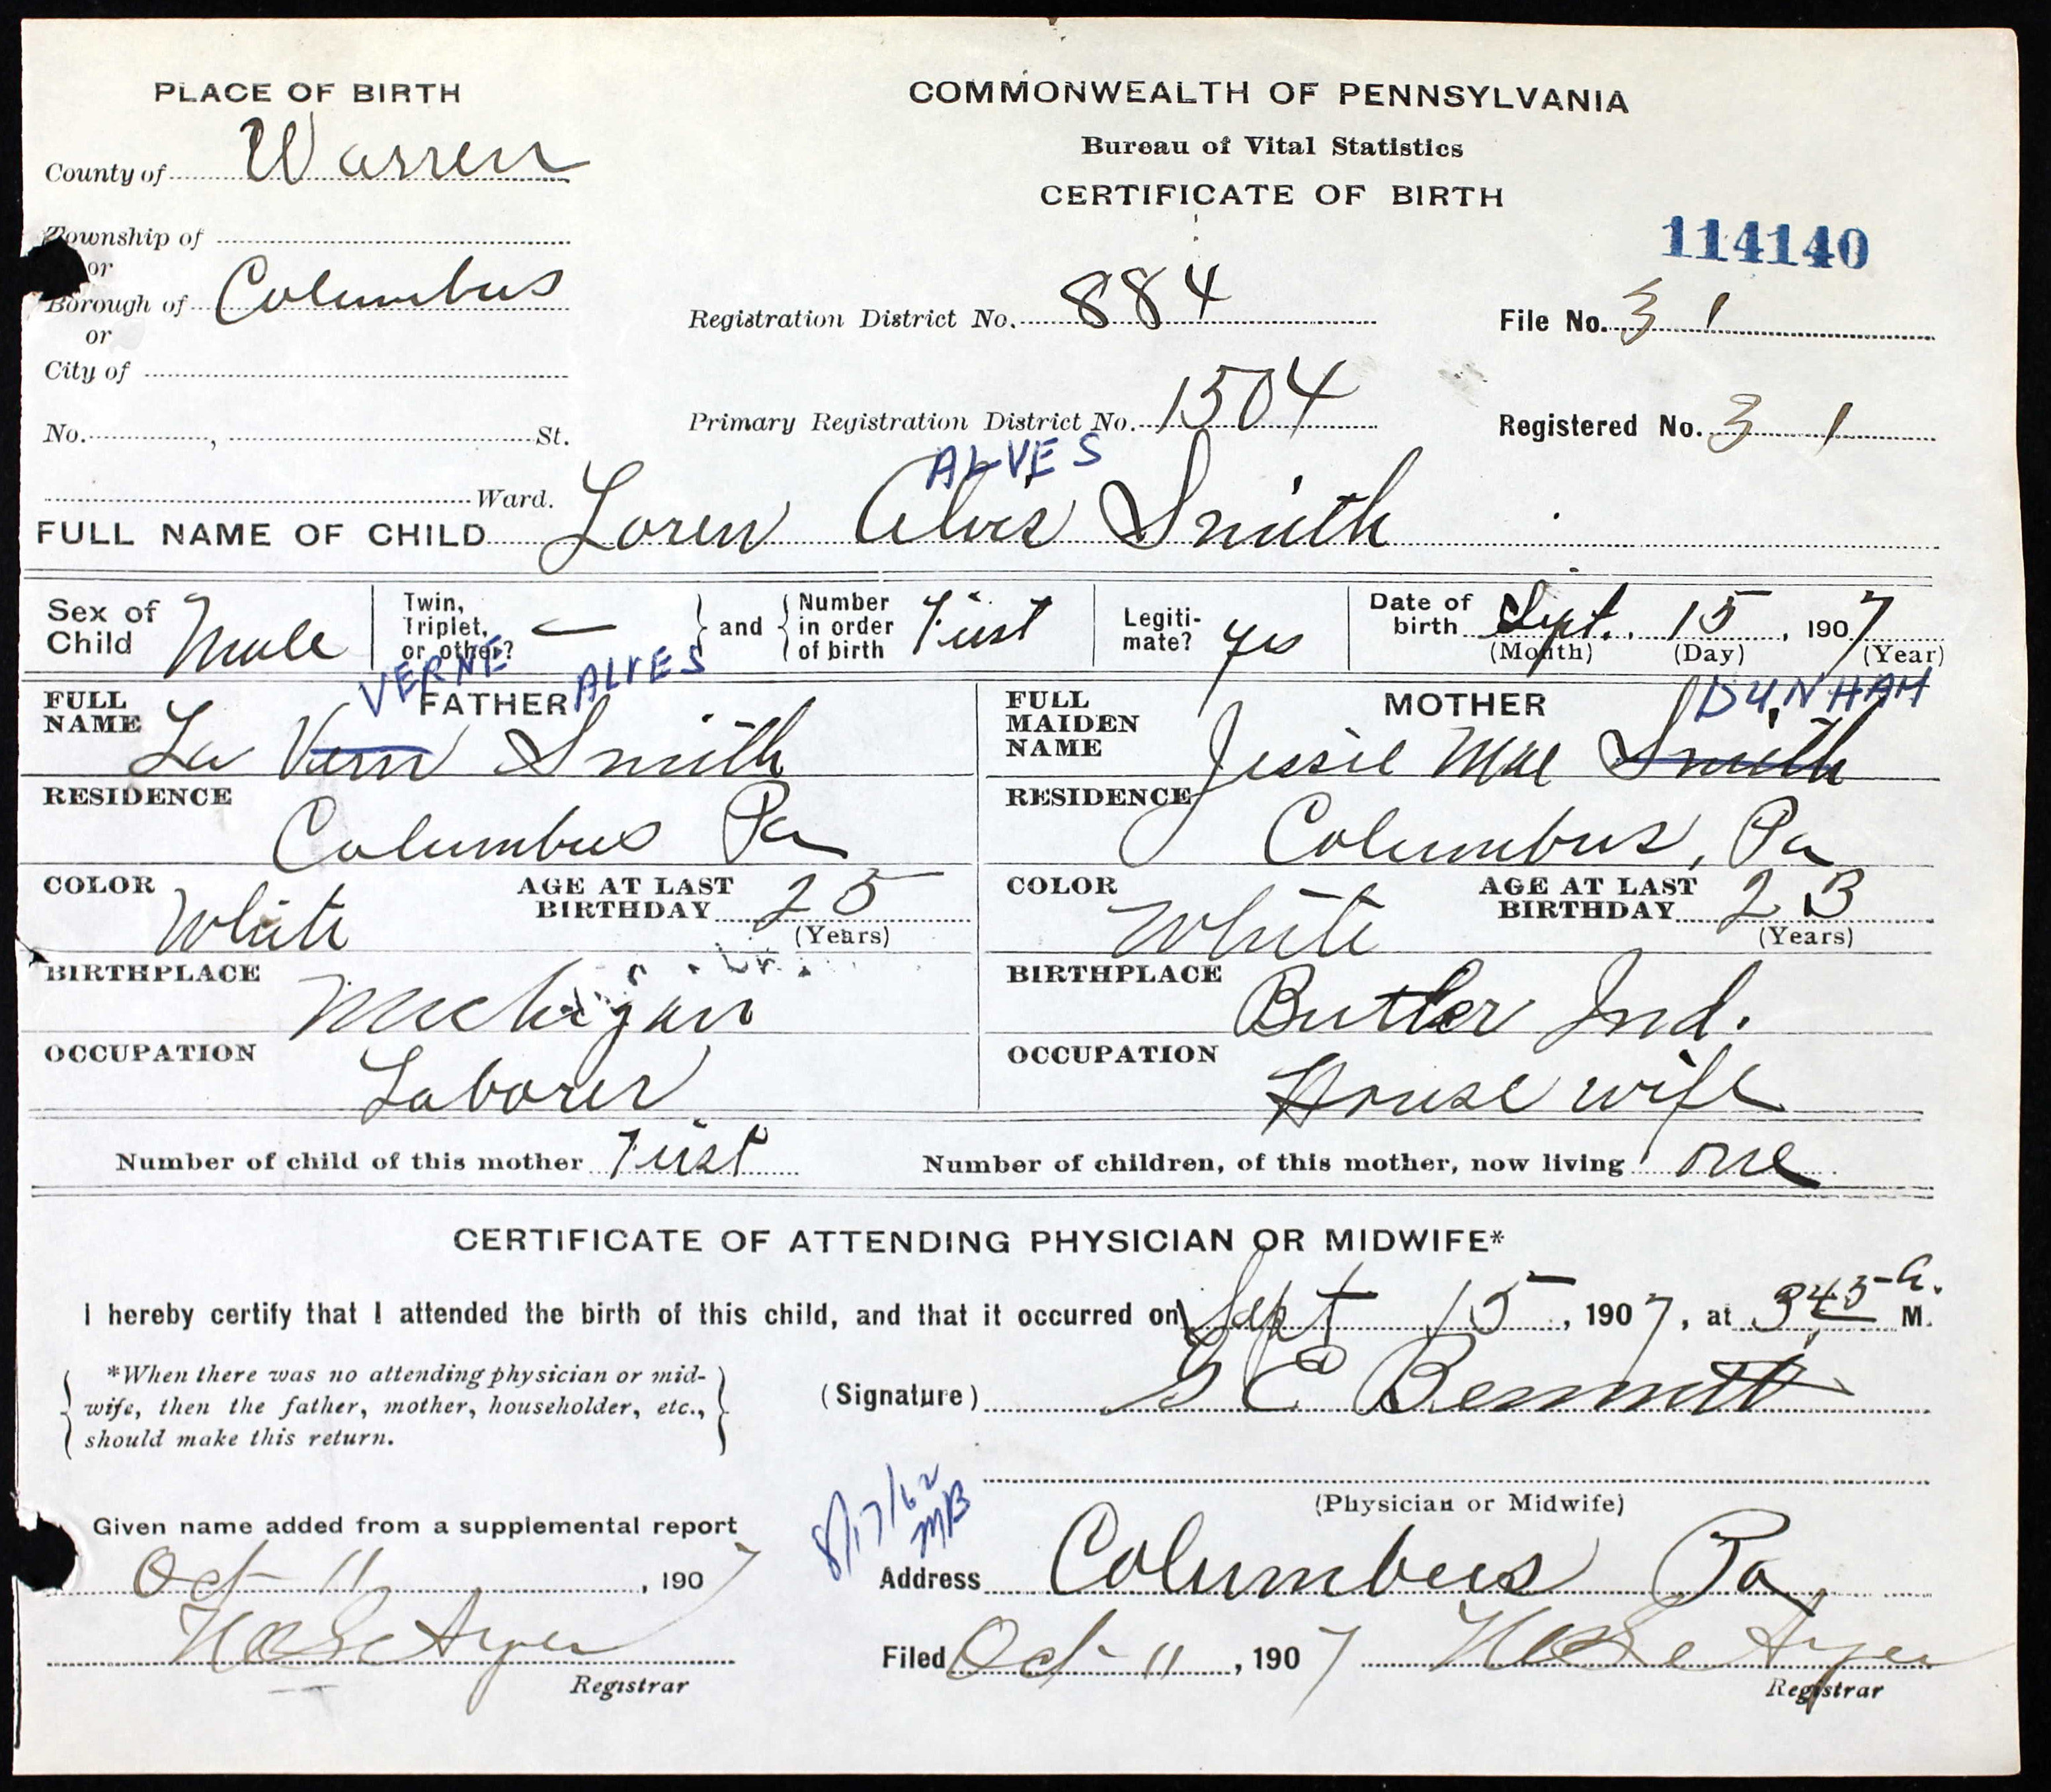 PLACE OF BIRTH
County of Warren
Township of
or
Borough of Columbus
or
City of
No. , St.
Ward.
COMMONWEALTH OF PENNSYLVANIA
Bureau of Vital Statistics
CERTIFICATE OF BIRTH
114140
Registration District No. 884
File No. 31
Primary Registration District No. 1504
Registered No. 31
ALVES
FULL NAME OF CHILD Loren Alvis Smith
Sex of Child Male
Twin, Triplet, or other? —
and
Number in order of birth First
Legitimate? yes
Date of birth Sept. 15, 1907
(Month) (Day) (Year)
VERNE ALVES
FATHER
FULL NAME La Vern Smith
RESIDENCE
Columbus Pa
COLOR White
AGE AT LAST BIRTHDAY 25
(Years)
BIRTHPLACE
Michigan
OCCUPATION
Laborer
MOTHER
DUNHAM
FULL MAIDEN NAME Jessie Mae Smith
RESIDENCE
Columbus, Pa
COLOR White
AGE AT LAST BIRTHDAY 23
(Years)
BIRTHPLACE
Butler Ind.
OCCUPATION
House wife
Number of child of this mother First
Number of children, of this mother, now living one
CERTIFICATE OF ATTENDING PHYSICIAN OR MIDWIFE*
I hereby certify that I attended the birth of this child, and that it occurred on Sept 15, 1907, at 345 a. M.
*When there was no attending physician or mid-
wife, then the father, mother, householder, etc.,
should make this return.
(Signature) G E Bennett
(Physician or Midwife)
8/17/62
MB
Given name added from a supplemental report
Oct 11, 1907
Ayer
Registrar
Address Columbus Pa
Filed Oct 11, 1907 Ayer
Registrar